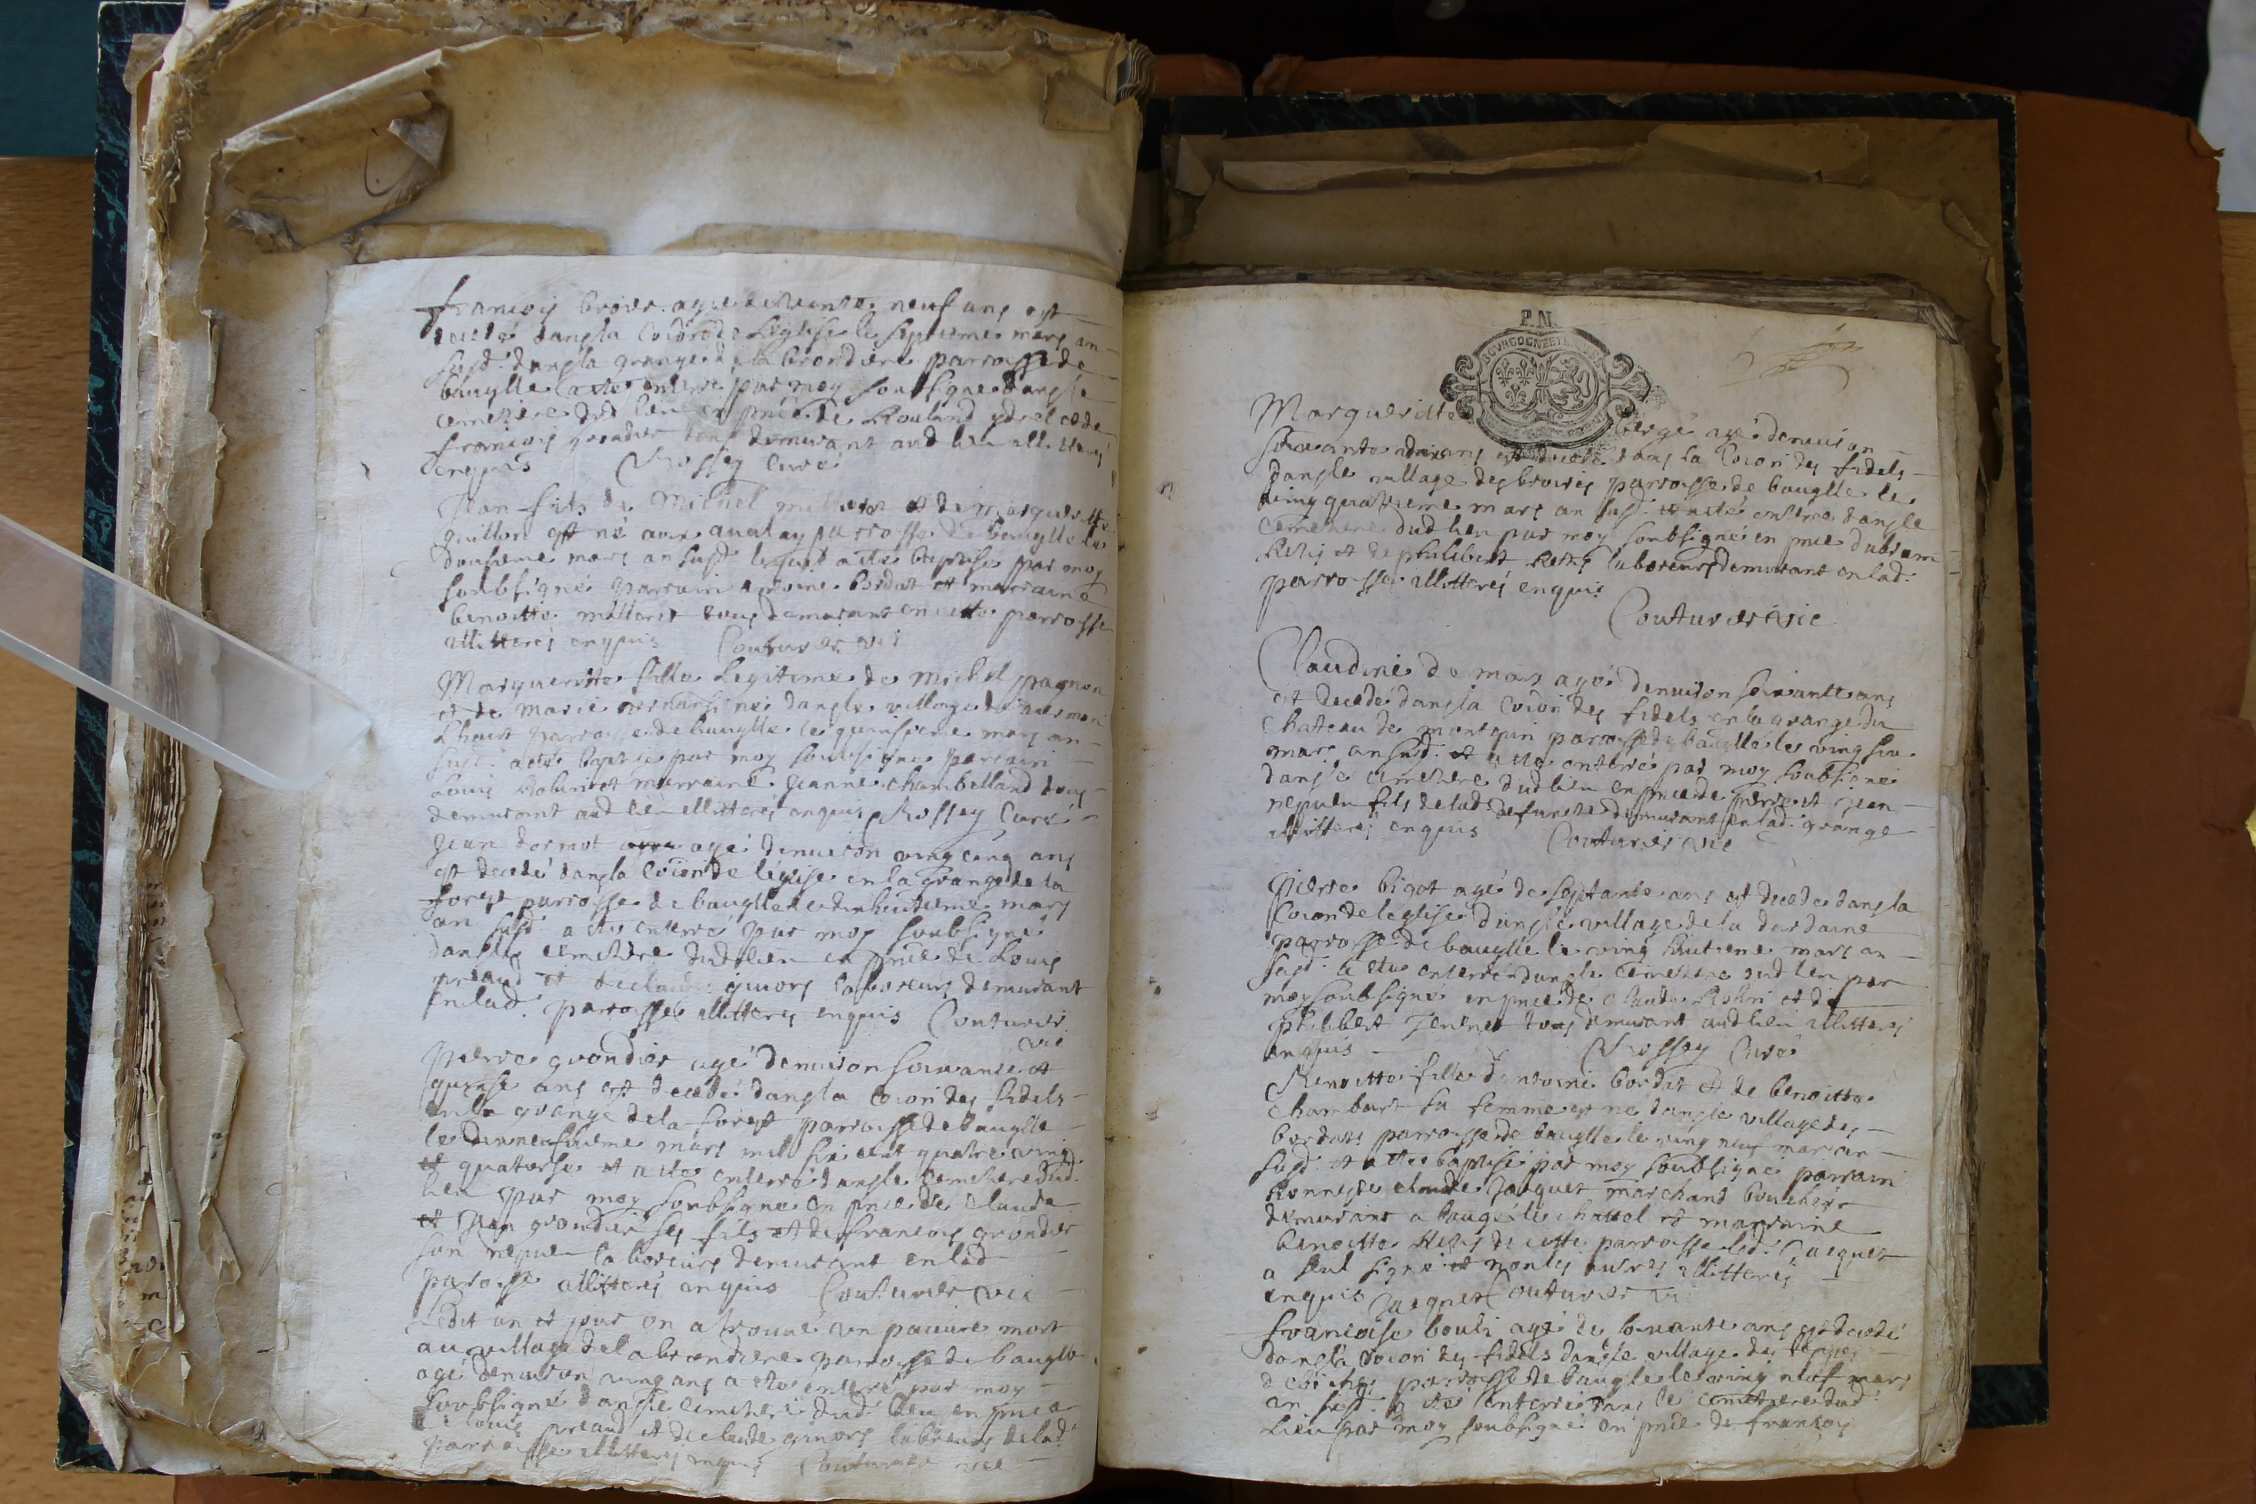 francois broier agé de trante neuf ans est
decedé dans la coiōn de l'eglise le septieme mars an
susd. dans la grange de la brondiere parroisse de
baugllé a ette enterré par moy soubsigné dans le
cemetiere dud. lieu en pnce de
francois grondier tous demurant aud lieu illitterés
enquis Rossey curé
Jean fils de Michel milleret et de margueritte
guillon est né parroisse de baugllé le
dousieme mars an susd lequel a etté baptisé par moy
soubsigné parrain Antoine bordat et marraine
benoitte milleret tous demurant en cette parroisse
illitterés enquis Couturier vic
Margueritte fille legitime de Michel pagnon
et de Marie née dans le village de
parroisse de baugllé le quinsieme mars an
susd. a etté baptisé par moy soubsigné parrain
Louis et marraine Jeanne chambelland tous
demurant aud lieu illitterés enquis Rossey Curé
Jean dormot agé denviron ving cinq ans
est decedé dans la coiōn de l'église en la grange de la
forest parroisse de baugllé le dixhuitieme mars
an susd a ette enterré par moy soubsigné
dans le cemetiere dud lieu en pnce de Louis
preaud et de claude guiors laboreurs demurant
en lad. parroisse illitterés enquis Couturier
vic
Pierre grondier agé denviron soixante et
quinse ans est decedé dans la coion des fidels
en la grange de la forest parroisse de baugllé
le dixneufsieme mars mil six cent quatre ving
et quatorse et a ette enterré dans le cemetiere dud.
lieu par moy soubsigné en pnce de Claude
et Jean grondier ses fils et de francois grondier
son nepveu laboreurs demurant en lad
parroisse illitterés enquis Couturier vic
Ledit an et jour on a trouvé un pauvre mort
au village de la brondiere parroisse de baugllé
agé denviron ving ans a ette enterré par moy
soubsigné dans le cemetiere dud lieu en pnce
de louis preaud et de claude guiors laboreurs de lad.
parroisse illitterés enquis Couturier vic
P.N.
BOURGOGNE ET
Margueritte bergé agé denviron
soixante ans est decedé dans la Coion des fidels
dans le village des broires parroisse de baugllé le
ving quatrieme mars an susd. et a été enterré dans le
cemetiere dud lieu par moy soubsigné en pnce dabram
Rehis et de philibert Rehis laboreurs demurant en lad.
parroisse illitterés enquis
Couturier vic
Claudine de mars agé denviron soixantte ans
est decedé dans la coion des fidels en la grange du
chateau de montpin parroisse de baugllé le ving six
mars an susd. et a ette enterré par moy soubsigné
dans le cemetiere dud lieu en pnce de pierre et Jean
nepveu fils de lad deffuncte demurant en lad. grange
illitterés enquis Couturier vic
Pierre bigot agé de septante ans est decedé dans la
Coion de leglise dans le village de la dardaine
parroisse de baugllé le ving huitieme mars an
susd. a ette enterré dans le cemetiere dud lieu par
moy soubsigné en pnce de claude et de
philibert Jenner tous demurant aud lieu illitterés
enquis Rossey Curé
Benoitte fille dantoine bordat et de benoitte
chambart sa femme est né dans le village des
bordats parroisse de baugllé le ving neuf mars an
susd. et a ette baptisé par moy soubsigné parrain
honneste claude Jacquet marchand boucher
demurant a baugé le chattel et marraine
benoitte Rehis de cette parroisse led. Jacquet
a seul signé et non les autres illitterés
enquis Jacquet Couturier vic
francoise bouli agé de nonante ans est decedé
dans la coion des fidels dans le village des
parroisse de baugllé le ving neuf mars
an susd. a été enterré dans le cemetiere dud.
Lieu par moy soubsigné en pnce de francois